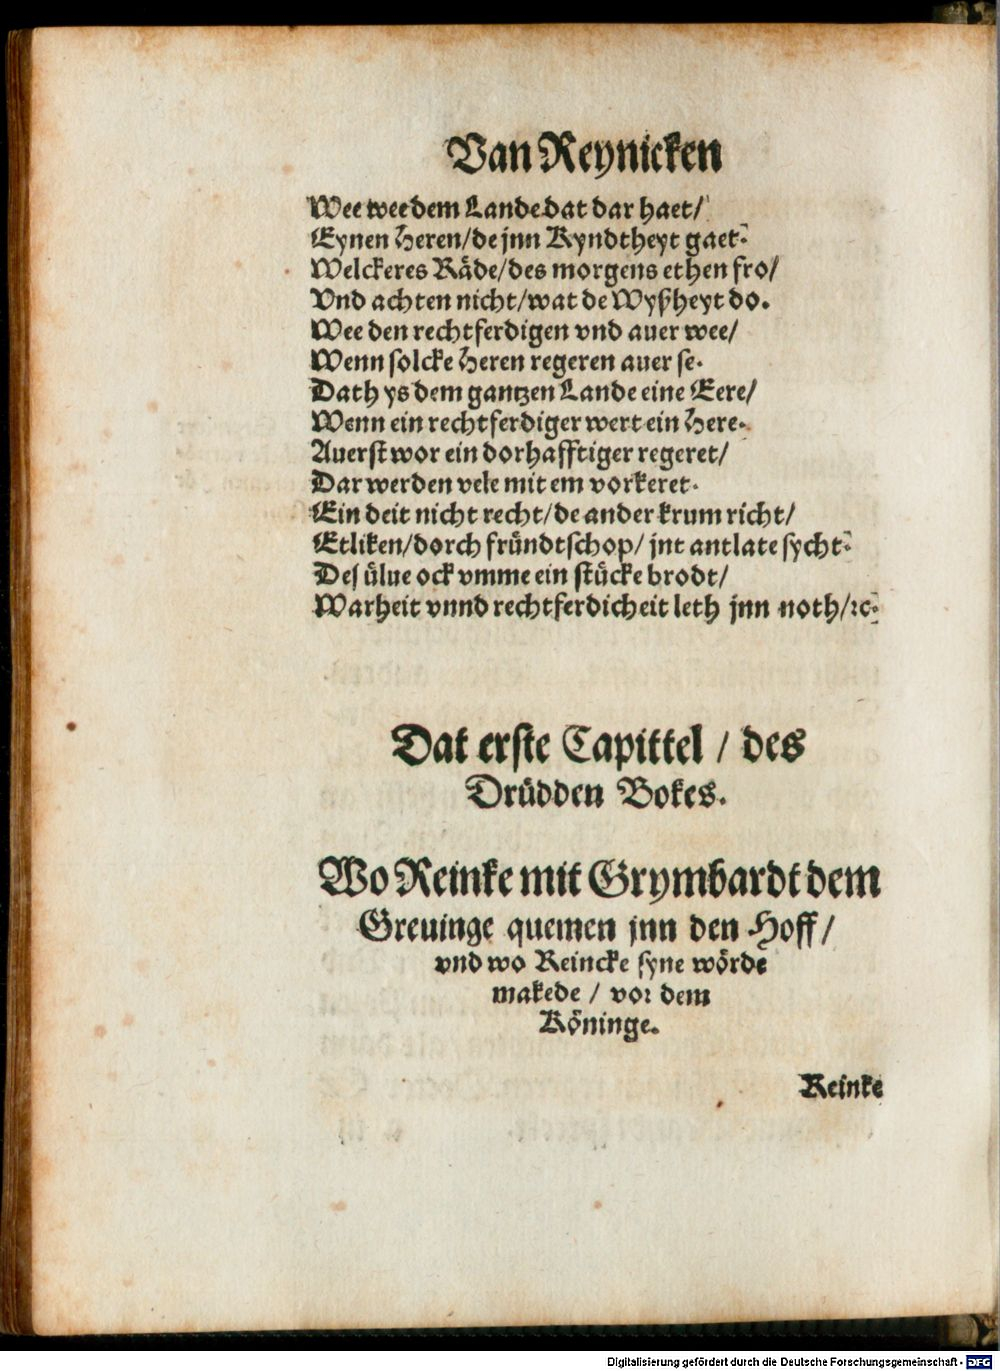 Van Reynicken
Wee wee dem Lande dat dar haet/
Eynen Heren/de jnn Kyndtheyt gaet.
Welckeres Räde/des morgens ethen fro/
Vnd achten nicht/wat de Wyßheyt do.
Wee den rechtferdigen vnd auer wee/
Wenn solcke Heren regeren auer se.
Dath ys dem gantzen Lande eine Eere/
Wenn ein rechtferdiger wert ein Here.
Auerst wor ein dorhafftiger regeret/
Dar werden vele mit em vorkeret.
Ein deit nicht recht/de ander krum richt/
Etliken/dorch fründtschop/ jnt antlate sycht.
Des ülue ock vmme ein stücke brodt/
Warheit vnnd rechtferdicheit leth jnn noth/ꝛc.
Dat erste Capittel / des
Drüdden Bokes.
Wo Reinke mit Grymbardt dem
Greuinge quemen jnn den Hoff/
vnd wo Reincke syne wörde
makede / vor dem
Köninge.
Reinke
Digitalisierung gefördert durch die Deutsche Forschungsgemeinschaft - DFG